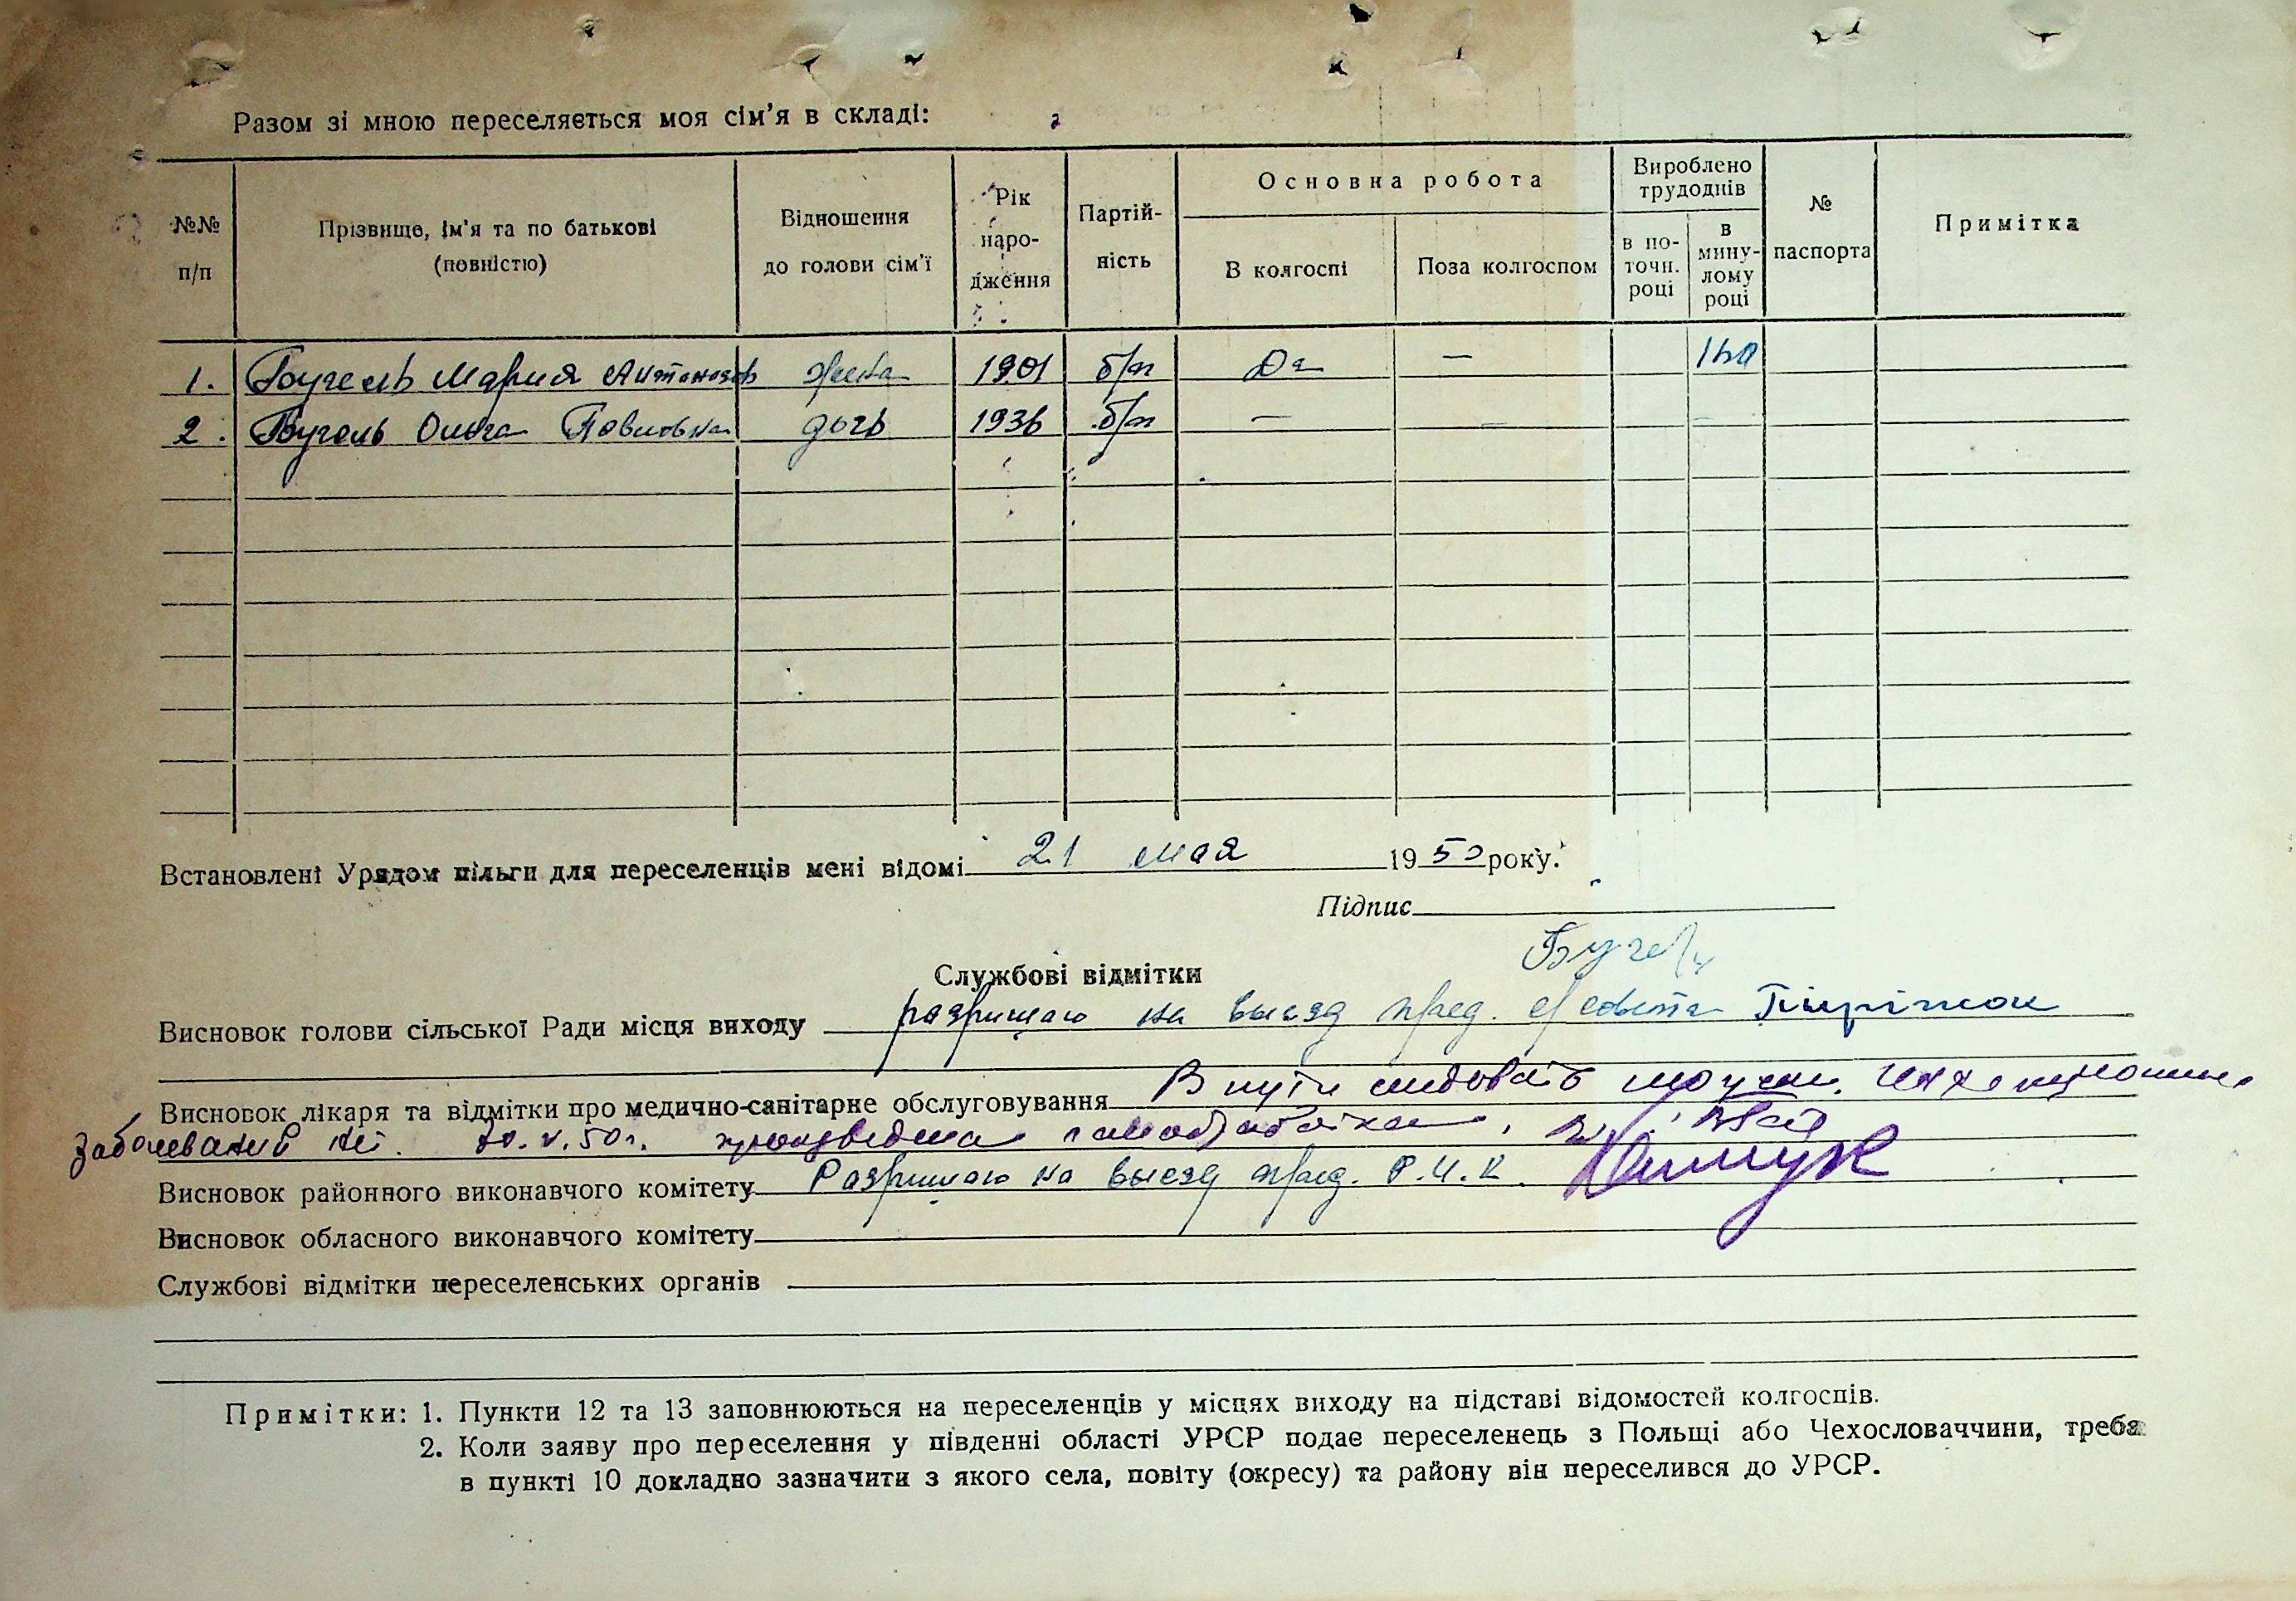 Разом зі мною переселяється моя сім'я в складі:
№№ п/п
Прізвище, ім'я та по батькові (повністю)
Відношення до голови сім'ї
Рік наро- дження
Партій- ність
Основна робота
В колгоспі
Поза колгоспом
Вироблено трудоднів
в по- точн. році
в мину- лому році
№ паспорта
Примітка
1. Бугель Мария жена 1901 б/п Да —
2. Бугель Ольга Павловна дочь 1936 б/п — — —
Встановлені Урядом пільги для переселенців мені відомі 21 мая 1950 року.
Підпис
Службові відмітки
Висновок голови сільської Ради місця виходу разришаю на выезд пред. с/совета
Висновок лікаря та відмітки про медично-санітарне обслуговування В пути следовать
заболеваний нет. 20.V.50г. произведена санобработка.
Висновок районного виконавчого комітету Разришаю на выезд пред. Р.И.К.
Висновок обласного виконавчого комітету
Службові відмітки переселенських органів
Примітки: 1. Пункти 12 та 13 заповнюються на переселенців у місцях виходу на підставі відомостей колгоспів.
2. Коли заяву про переселення у південні області УРСР подає переселенець з Польщі або Чехословаччини, треба
в пункті 10 докладно зазначити з якого села, повіту (окресу) та району він переселився до УРСР.